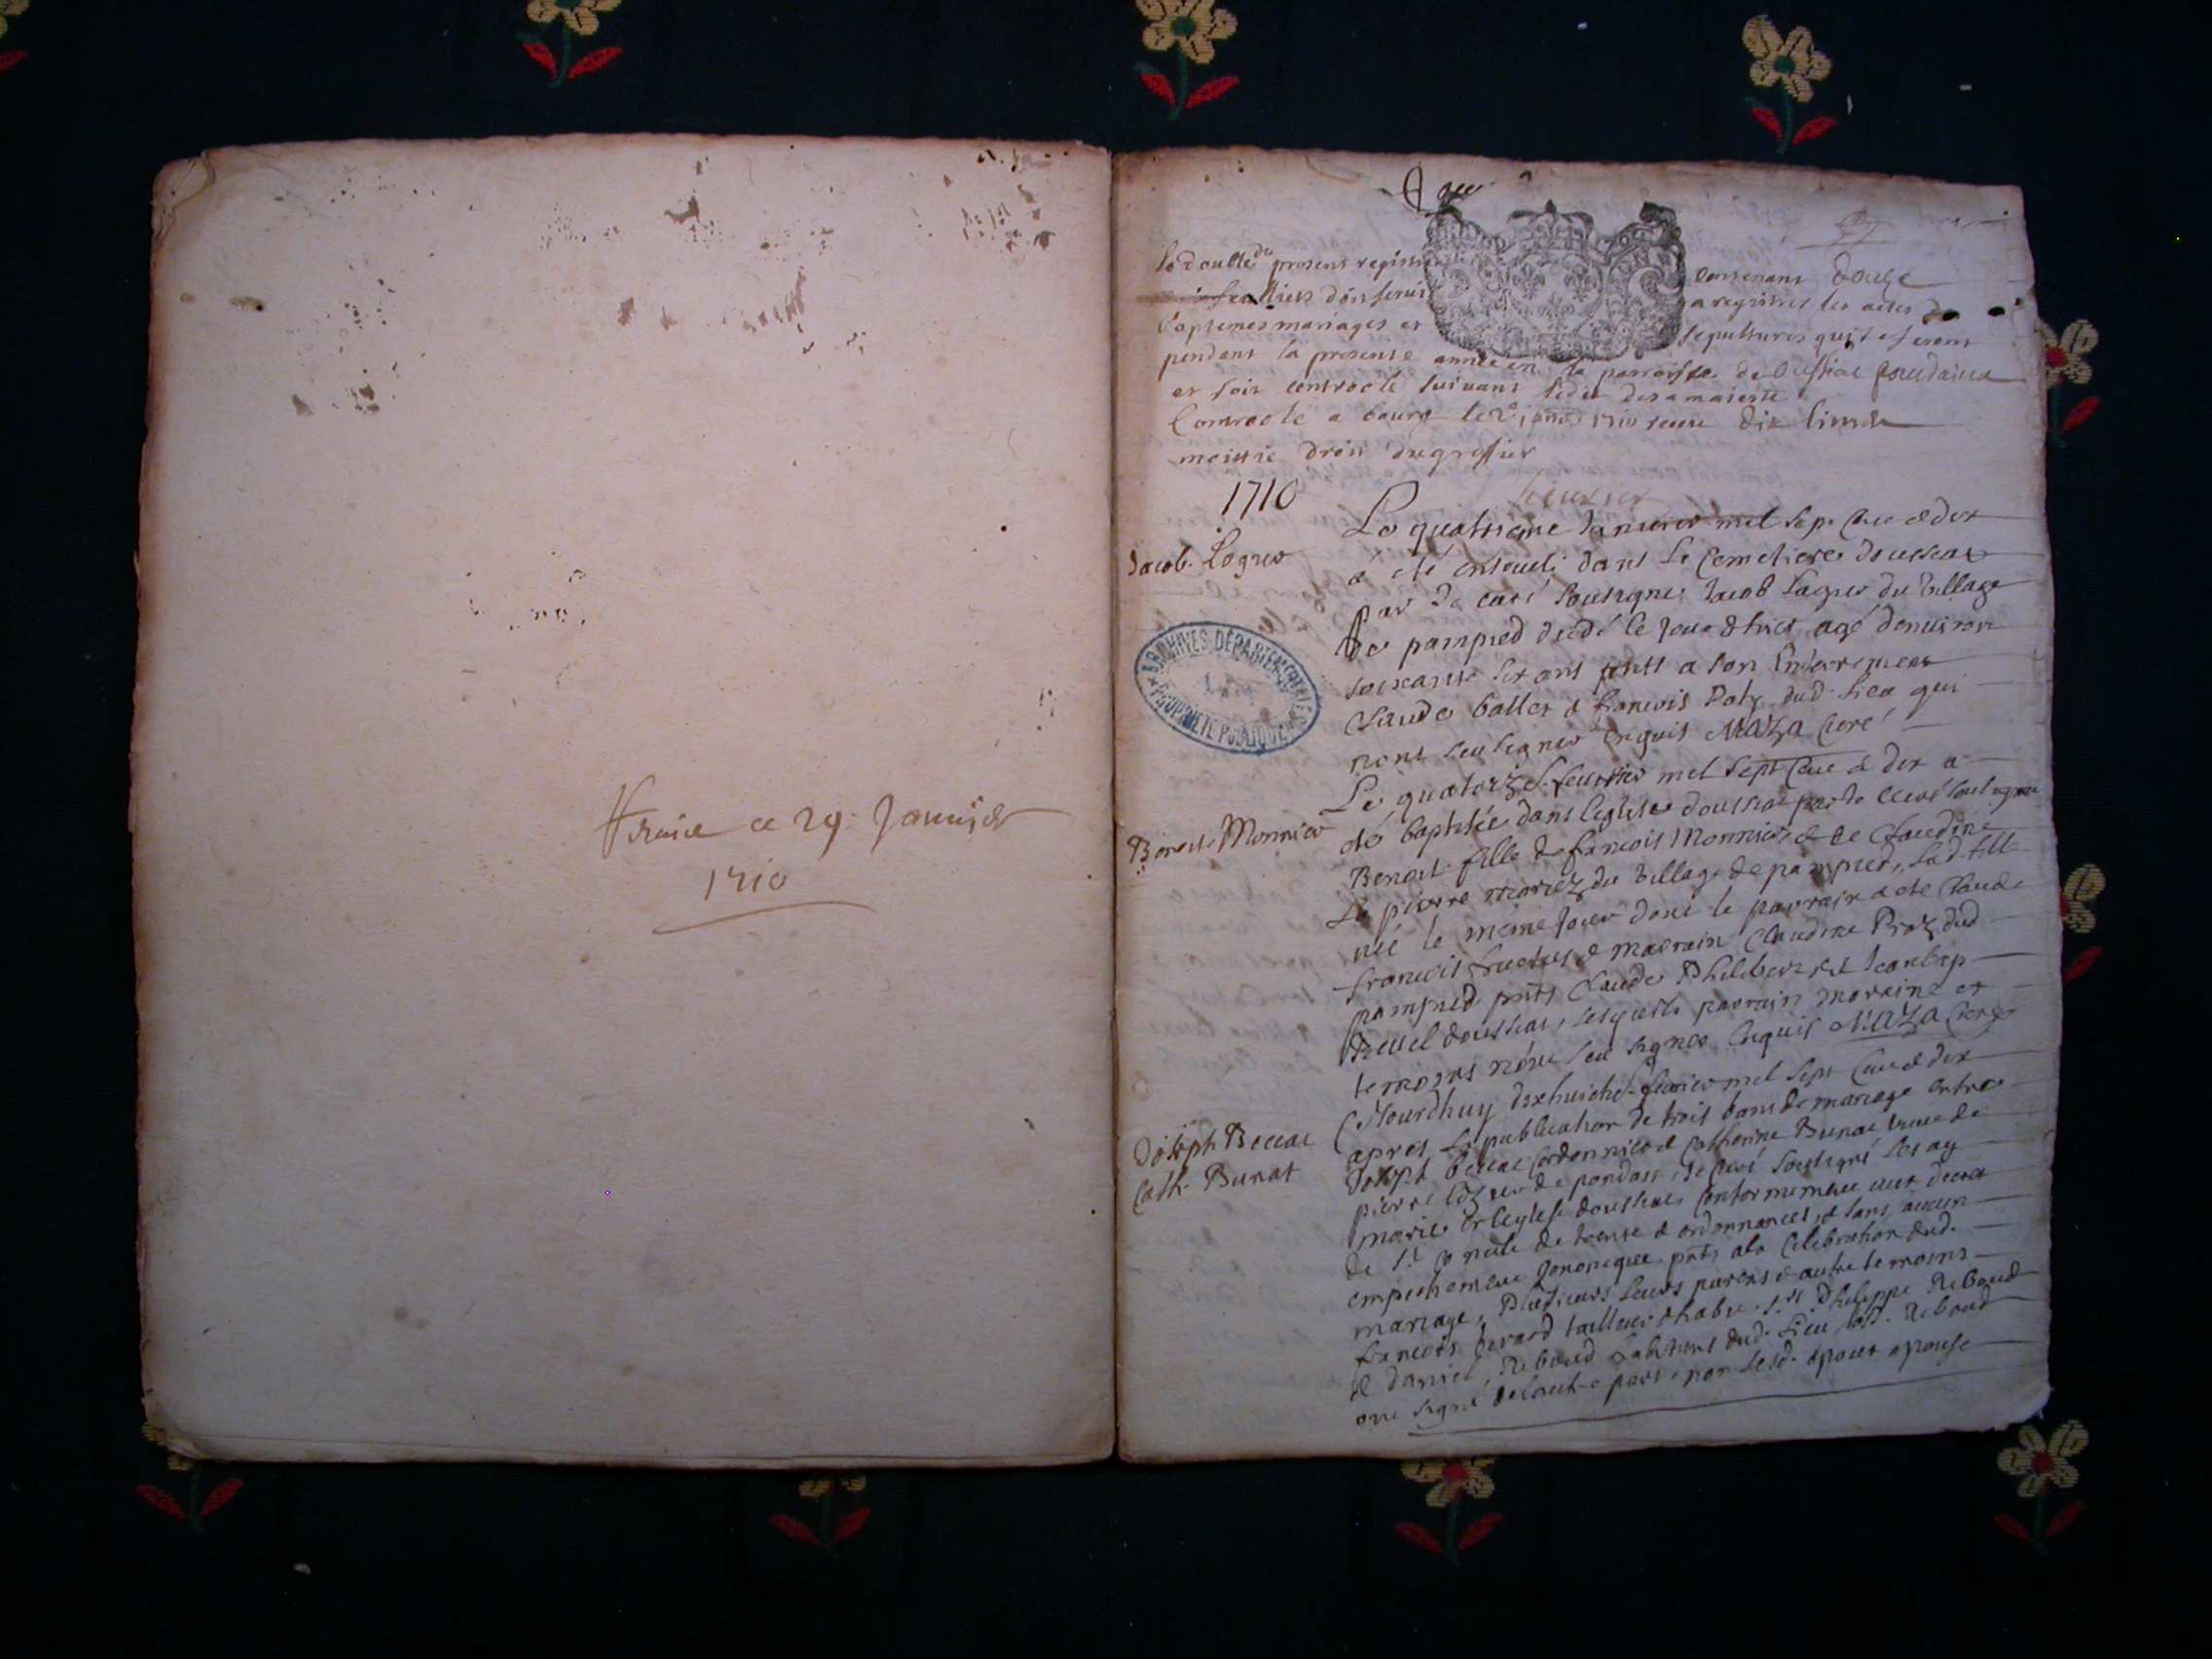 ce 29 Janvier
1710
le double du presens registre contenant douze
feulliets dois servir a registrer les actes de
baptemes mariages et sepultures qui se feront
pendant la presente année en la parroisse de
et soit controolé suivant ledit de sa majesté
Controole a bourg le 2e janv 1710 receu dix livres
moittie droit du greffier
1710
Jacob Logier
Le quatrieme Janvier mil sept cent & dix
a été enseveli dans le Cemetiere doussiat
par le curé soussigné Jacob Lagier du village
de pampied decedé le jour d'hier agé denviron
soixante six ans pnts a son Enterrement
Claude ballet & francois Paty dud. lieu qui
nont seu signer Enquis MAZA Curé
ARCHIVES DÉPARTEMENTALES
PROPRIÉTÉ PUBLIQUE
Benoite Monnier
Le quatorze feuvrier mil sept cent & dix a
été baptisée dans leglise doussiat par le Curé soussigné
Benoit fille de francois Monnier & de Claudine
La pierre mariez du village de pampied, lad. fille
née le meme jour dont le parrain a été Claude
francois & marraine Claudine Praz dud
pampied pnts Claude Philibert & Jean bap
doussiat, lesquels parrain maraine et
temoins nont seu signer Enquis MAZA Curé
Joseph Beccat
Cath. Bunat
Ajourdhuy dixhuictie fevrier mil sept cent & dix
apres la publication de trois bans de mariage entre
Joseph beccat Cordonnier & Catherine Bunat veuve de
pierre de pondain, le Curé soussigné les ay
marié en leglise doussiat conformement aux decret
de St Concile de trente & ordonnances, & sans aucun
empechement Canonique pnts a la Celebration dud.
mariage, plusieurs leurs parens & autre temoins
francois tailleur dhabit, Srs Philippe Reboud
& Daniel Reboud habitans dud. lieu lesd. Reboud
ont signé de lautre part non lesd. epoux epouse